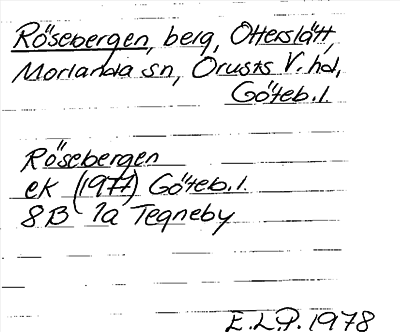 Rösebergen, berg, Otterslätt,
Morlanda sn, Orusts V. hd,
Göteb. l.
Rösebergen
ek (1977) Göteb. l.
8B 1a Tegneby
E.L.P. 1978